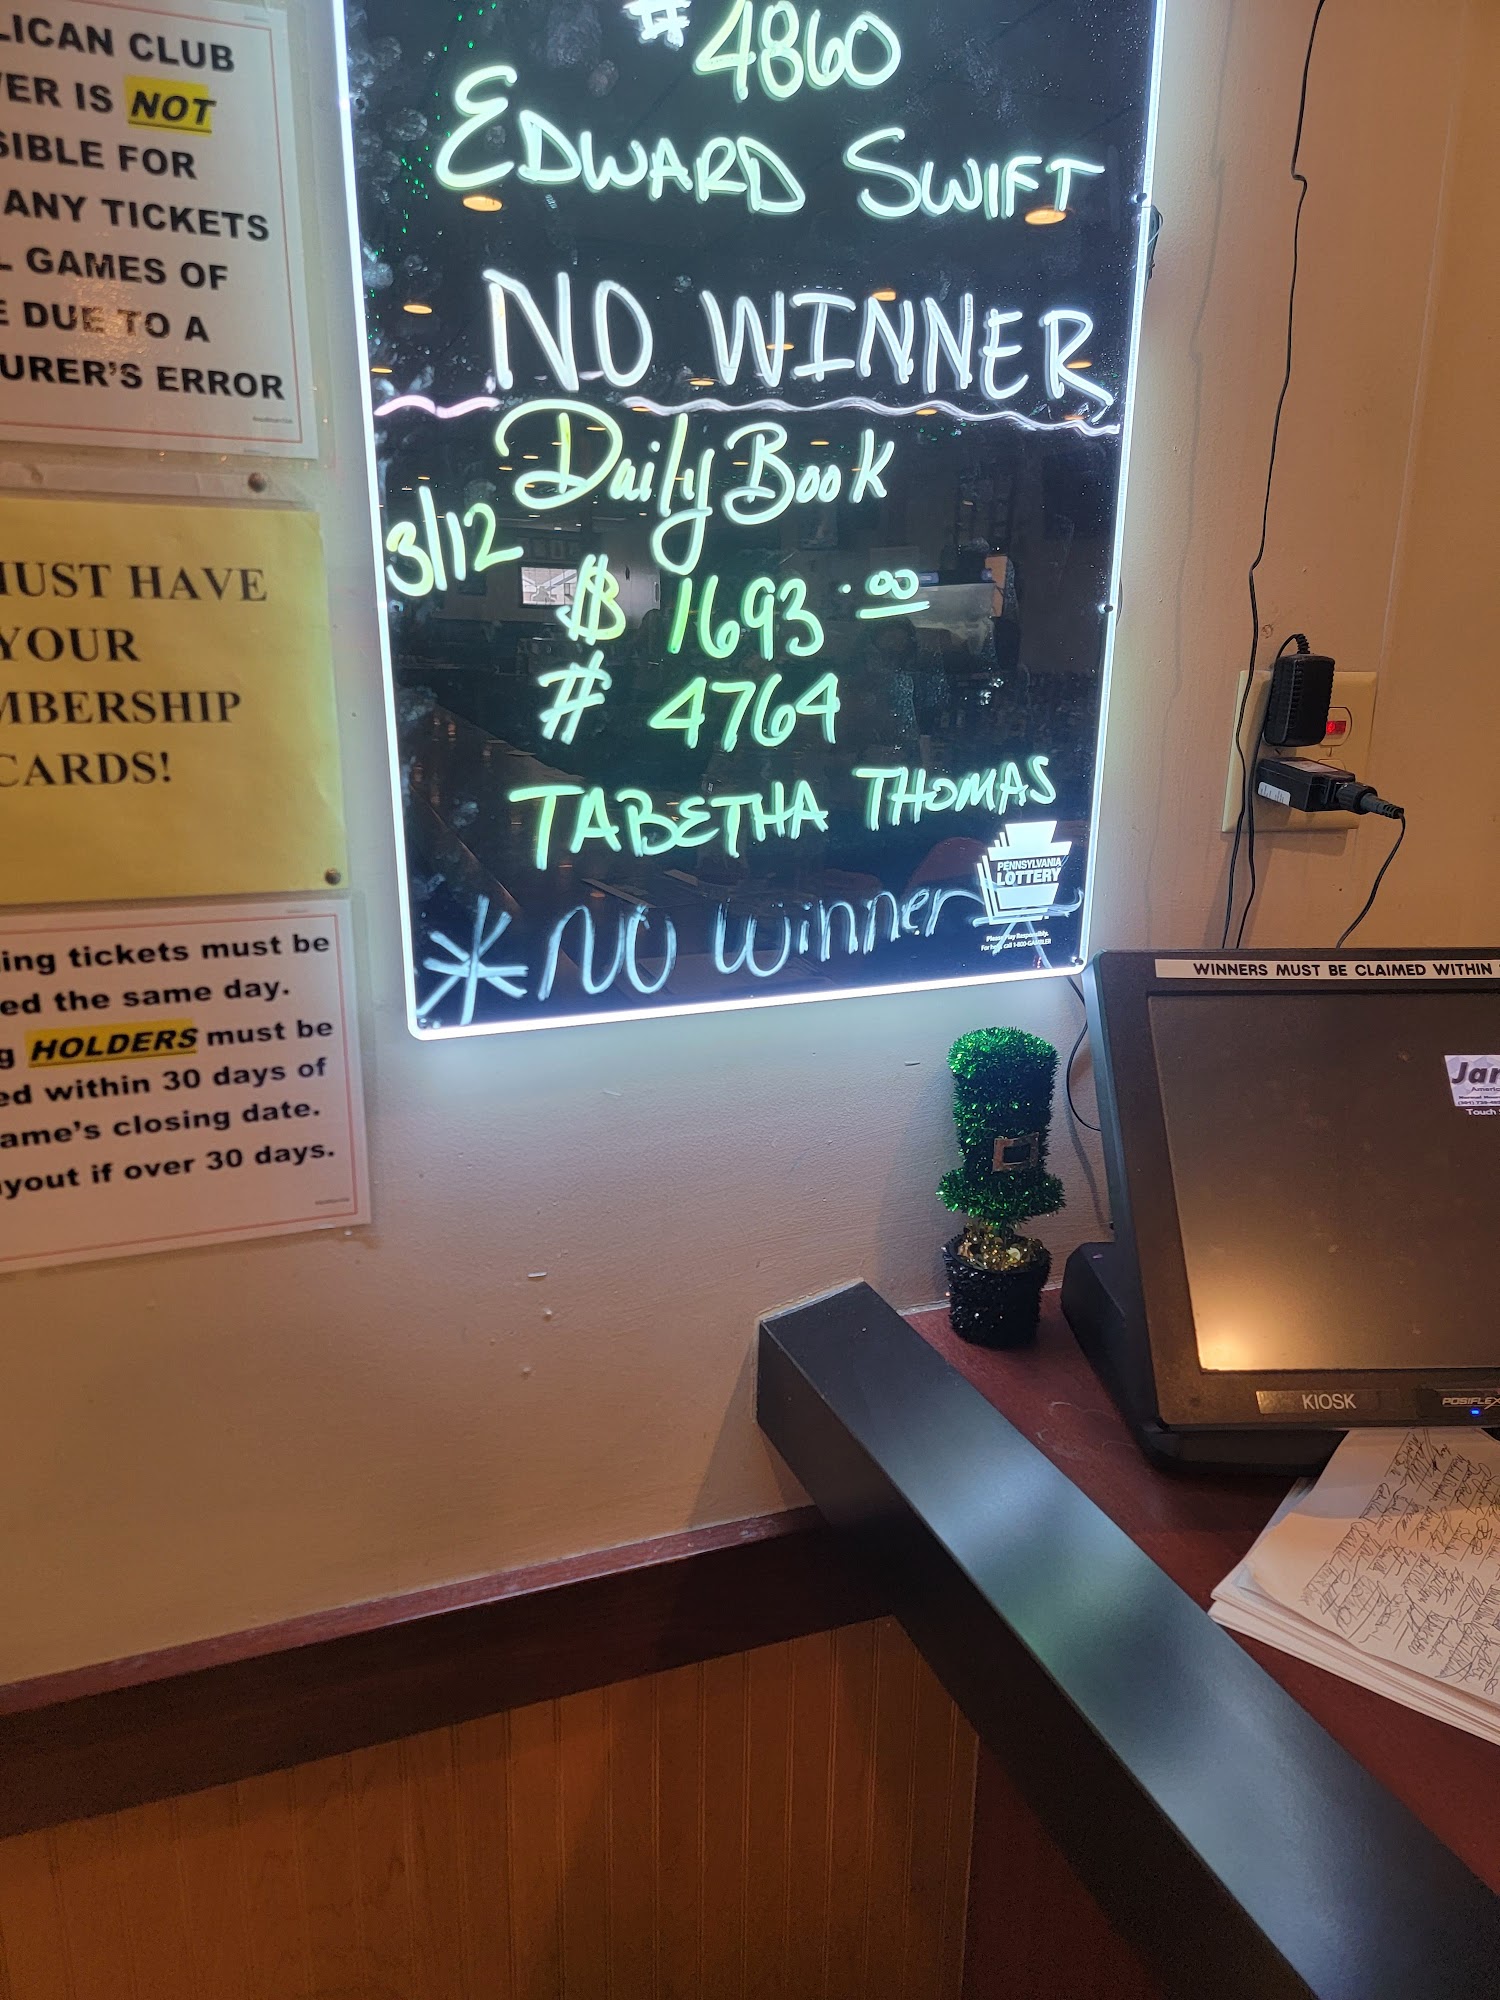 LICAN CLUB
VER IS NOT
SIBLE FOR
ANY TICKETS
L GAMES OF
E DUE TO A
URER'S ERROR
UST HAVE
YOUR
MBERSHIP
CARDS!
ing tickets must be
ed the same day.
g HOLDERS must be
ed within 30 days of
ame's closing date.
yout if over 30 days.
# 4860
EDWARD SWIFT
NO WINNER
Daily Book
3/12
$ 1693.00
# 4764
TABETHA THOMAS
* NO Winner
PENNSYLVANIA
LOTTERY
Please Play Responsibly.
For help call 1-800-GAMBLER
WINNERS MUST BE CLAIMED WITHIN
Jar
Touch
KIOSK
POSIFLEX